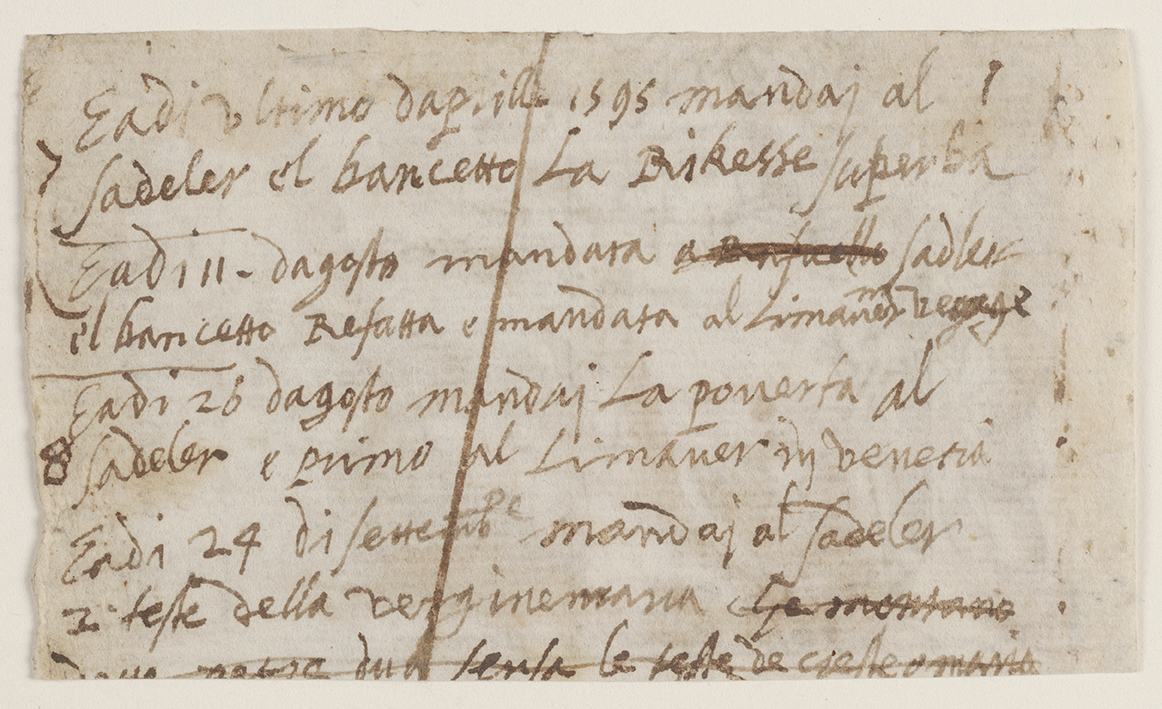 Eadi ultimo daprille 1595 mandaj al
7 Sadeler el bancetto La Rikesse superba
Eadi 11 - dagosto mandata a Rafaello Sadler
el bancetto Refatta e mandata al Limauer in
Eadi 26 dagosto mandaj La pouerta al
8 Sadeler e primo al Limauer in venetia
Eadi 24 di settembre mandaj al Sadeler
2 teste della verginemaria che montano
dua sensa le teste de